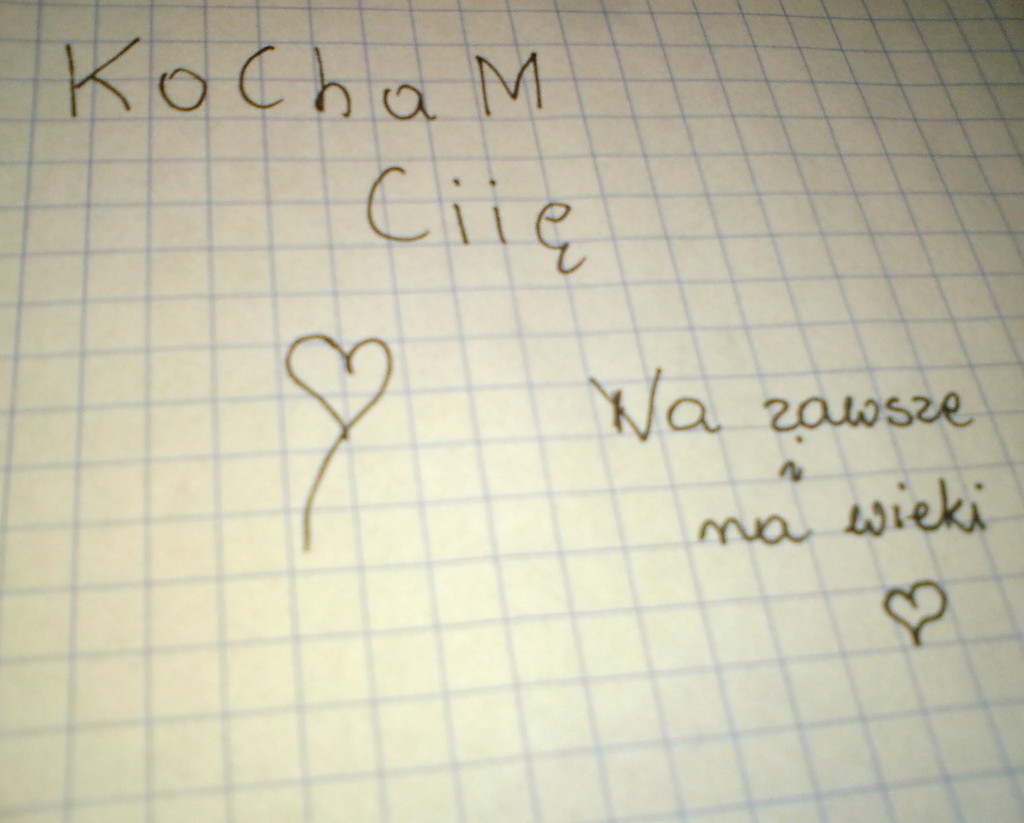 KoChaM
Ciię
Na zawsze
i
na wieki